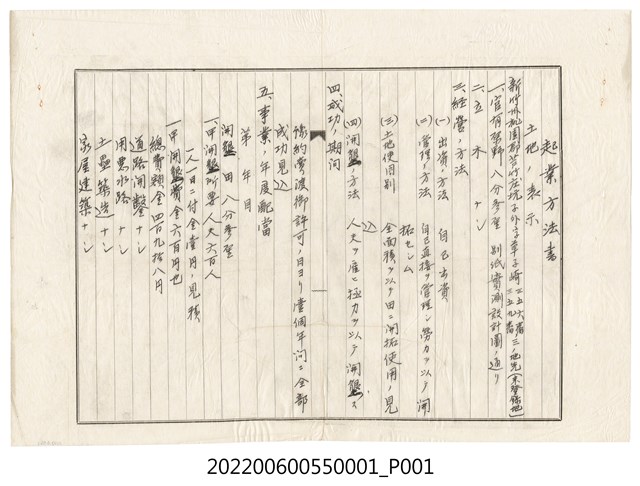 起業方法書
土地ノ表示
新竹州桃園郡苦苓坑子外字草子崎三五六番三五九番三ノ地先(未登錄地)
一、官有原野 八分參厘 別紙實測設計圖ノ通リ
二、立木 ナシ
三、經營ノ方法
(一)出資ノ方法 自己出資
(二)管理ノ方法 自己直接ノ管理シ勞力ヲ以テ開
拓セシム
(三)土地使用別 全面積ヲ以テ田ニ開拓使用ノ見
込
(四)開墾ノ方法 人夫ヲ雇ヒ極力ヲ以テ開墾ス
四、成功ノ期間
豫約賣渡御許可ノ日ヨリ壹個年間ニ全部
成功見込
五、事業ノ年度配當
第一年目
開墾 田 八分參厘
一、甲開墾所要人夫六百人
一人一日ニ付金壹円ノ見積
一甲開墾費金六百円也
總費額金四百九拾八円
道路開鑿ナシ
用惡水路ナシ
土壘築造ナシ
家屋建築ナシ
202200600550001_P001